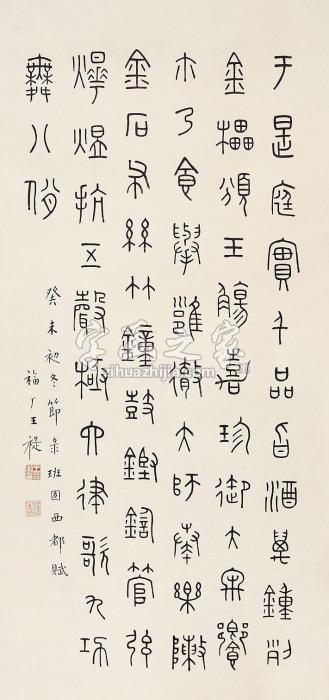 于是庭實千品旨酒萬鍾列
金櫑頒玉觴嘉珍御大牢饗
尒乃食舉雝徹大師奏樂陳
金石布絲竹鐘鼓鏗鍧管弦
燁煜抗五聲極六律歌九功
舞八佾
癸未初冬節彔班固西都賦
福厂王禔
字画之家
zihuazhijia.com